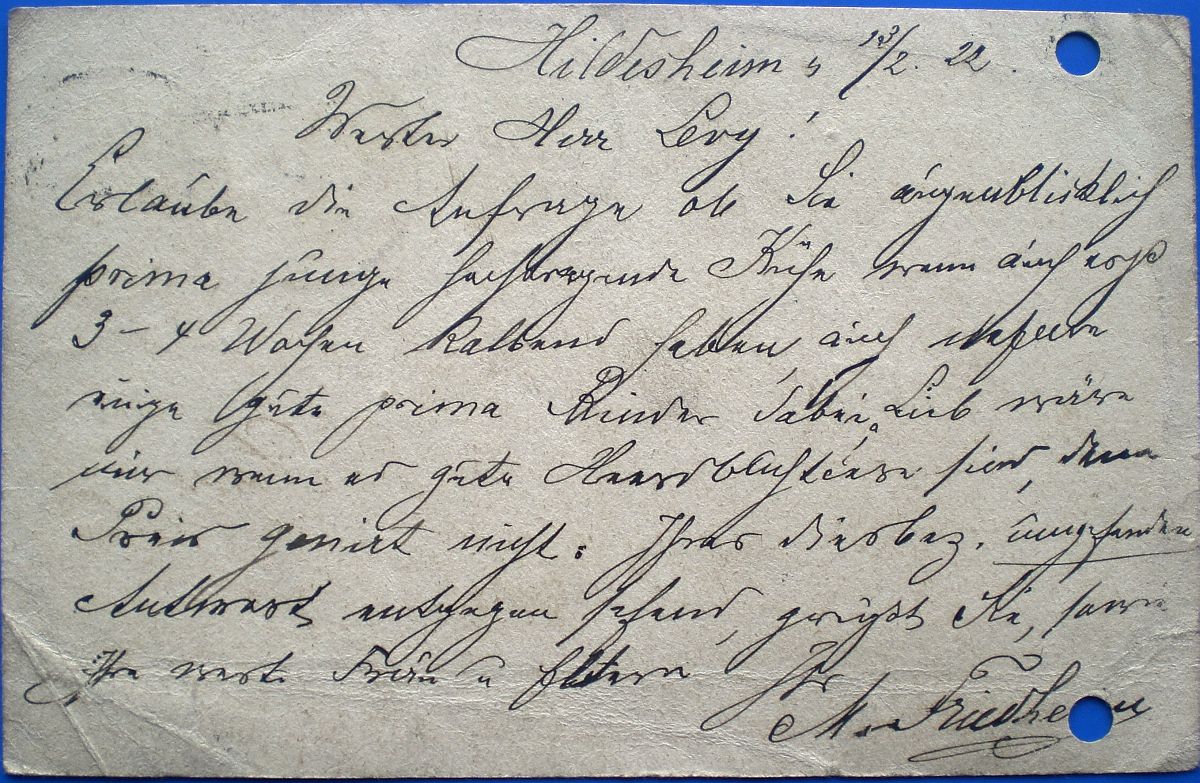 Hildesheim, 13/2. 22.
Werter Herr Levy!
Erlaube die Anfrage ob Sie augenblicklich
prima junge hochtragende Kühe wenn auch erst
3-4 Wochen kalbend haben, auch
einige gute prima Rinder dabei. Lieb wäre
mir wenn es gute sind, denn
Preis genirt nicht. Ihrer diesbez. umgehenden
Antwort entgegen sehend, grüßt Sie, sowie
Ihre werte Frau u Eltern Ihr
M. Friedheim